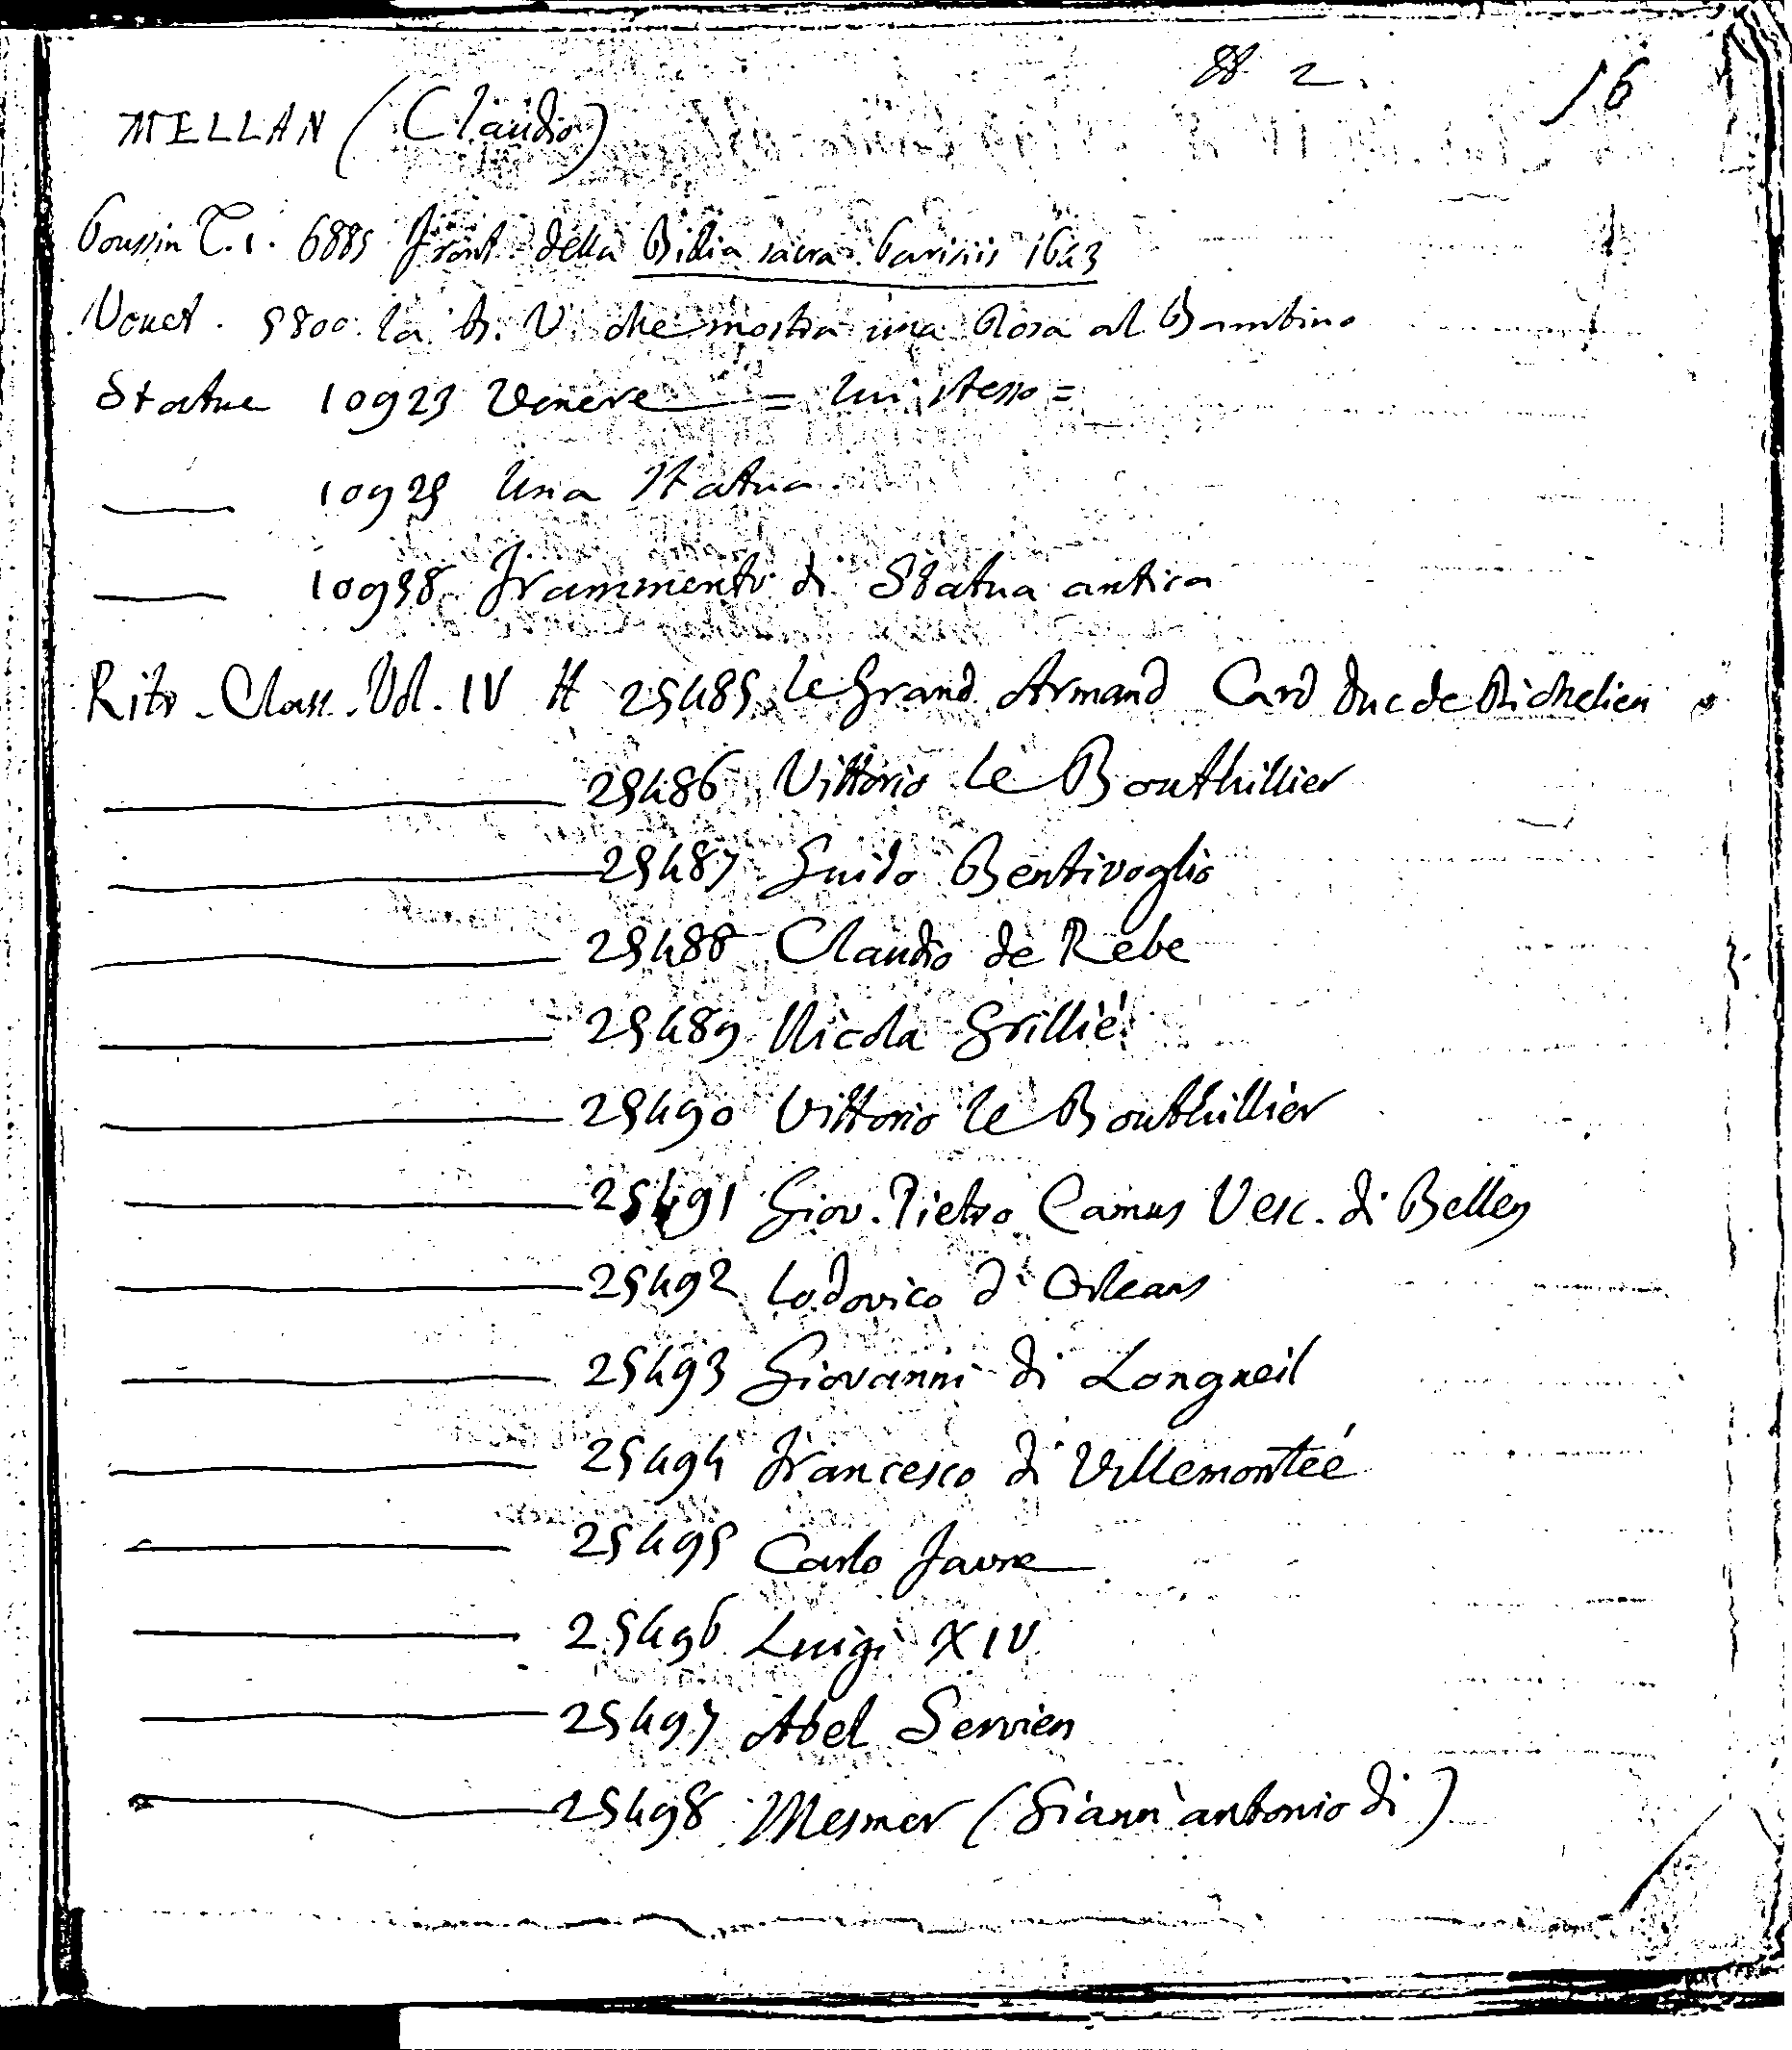 2. 16
MELLAN (Claudio)
Poussin T. 1. 6885 Front. della Biblia sacra. Parisiis 1643
Vouet. 5800. la B. V. che mostra una Rosa al Bambino
Statue 10923 Venere = lui stesso =
—— 10925 Una Statua
—— 10938 Frammento di Statua antica
Ritr. Class. Vol. IV H 25485 le Grand Armand Card Duc de Richelieu
—— 25486 Vittorio le Bouthillier
—— 25487 Guido Bentivoglio
—— 25488 Claudio de Rebe
—— 25489 Nicola Grillié
—— 25490 Vittorio le Bouthillier
—— 25491 Giov. Pietro Camus Vesc. di Belley
—— 25492 Lodovico d'Orleans
—— 25493 Giovanni di Longueil
—— 25494 Francesco di Villemonteé
—— 25495 Carlo Favre
—— 25496 Luigi XIV
—— 25497 Abel Servien
—— 25498 Mesmer (Giann'antonio di)